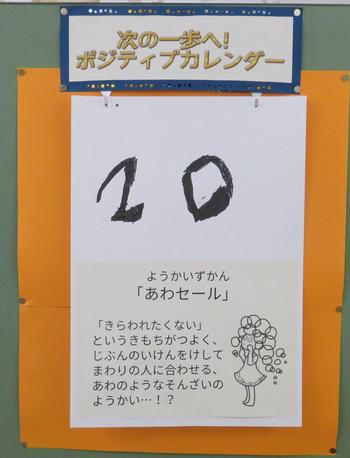 次の一歩へ!
ポジティブカレンダー
20
ようかいずかん
「あわセール」
「きらわれたくない」
というきもちがつよく、
じぶんのいけんをけして
まわりの人に合わせる、
あわのようなそんざいの
ようかい…!?